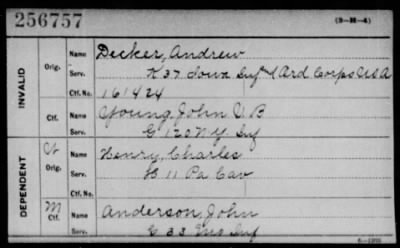 256757 (3-H-4)
INVALID
Orig. Name Decker, Andrew
Serv. K 37 Iowa Inf & Ord Corps U.S.A
Ctf. No. 161424
Ctf. Name Young, John V B
Serv. G 120 N.Y. Inf
DEPENDENT
W Orig. Name Henry, Charles
Serv. B 11 Pa Cav
Ctf. No.
M Ctf. Name Anderson, John
Serv. E 33 Inf
6-1205